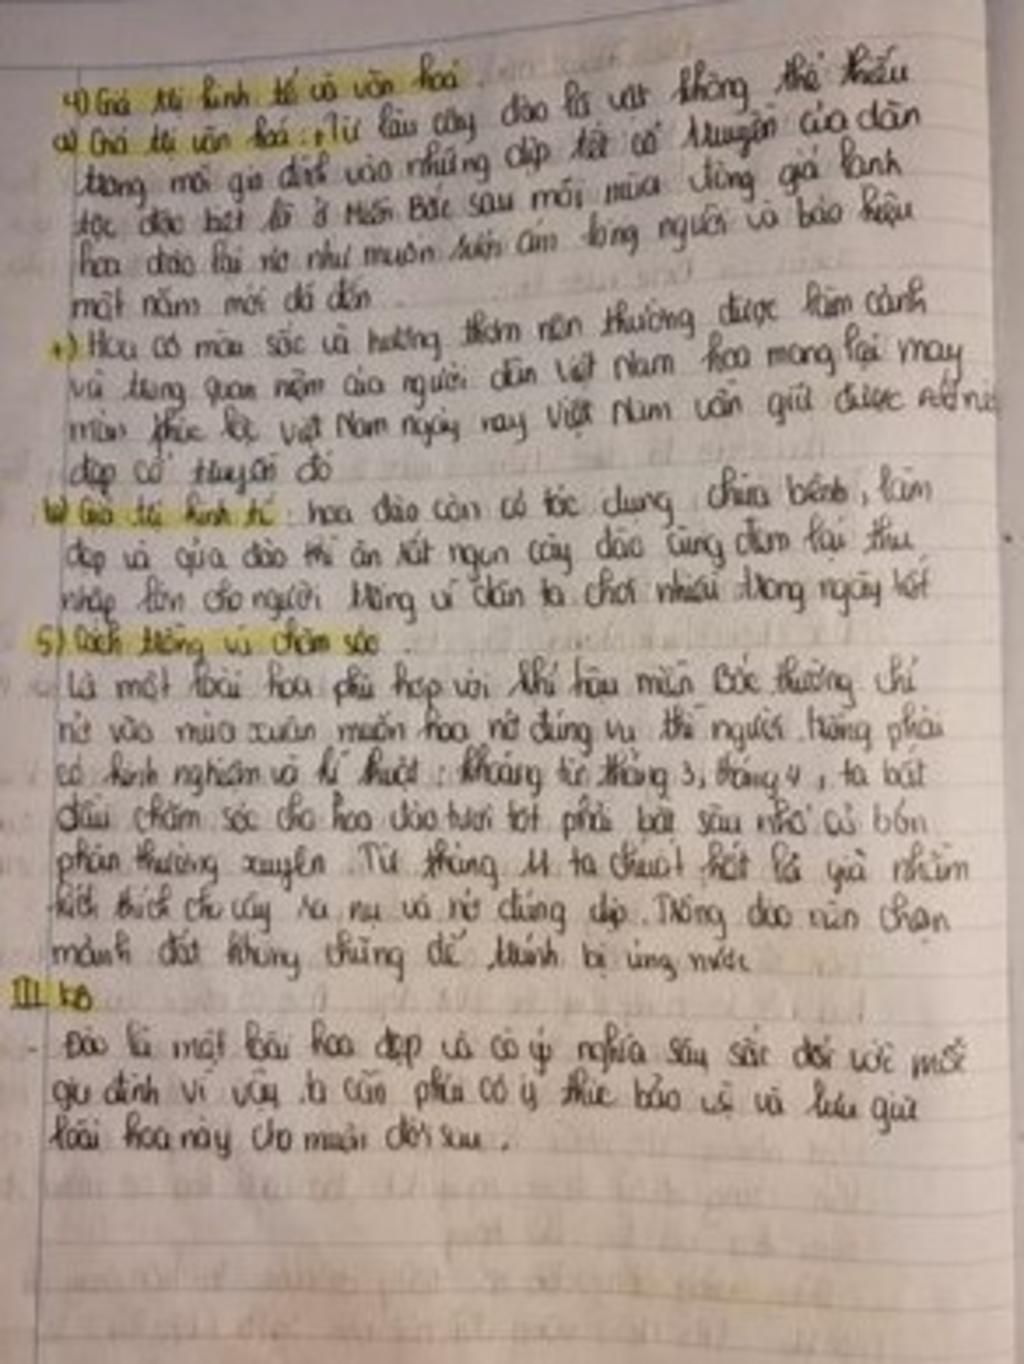 4) Giá trị kinh tế và văn hoá.
a) Giá trị văn hoá: + Từ lâu cây đào là vật không thể thiếu
trong mỗi gia đình vào những dịp tết cổ truyền của dân
tộc đặc biệt là ở Miền Bắc sau mỗi mùa đông giá lạnh
hoa đào lại nở như muốn sưởi ấm lòng người và báo hiệu
một năm mới đã đến.
+) Hoa có màu sắc và hương thơm nên thường được làm cảnh
và trong quan niệm của người dân Việt Nam hoa mang lại may
mắn phúc lộc Việt Nam ngày nay Việt Nam vẫn giữ được
đẹp cổ truyền đó
b) Giá trị kinh tế: hoa đào còn có tác dụng chữa bệnh, làm
đẹp và qủa đào thì ăn rất ngon cây đào cũng đem lại thu
nhập lớn cho người trồng vì dân ta chơi nhiều trong ngày tết
5) Cách trồng và chăm sóc.
Là một loài hoa phù hợp với khí hậu miền Bắc thường chỉ
nở vào mùa xuân muốn hoa nở đúng vụ thì người trồng phải
có kinh nghiệm và kĩ thuật: khoảng từ tháng 3, tháng 4, ta bắt
đầu chăm sóc cho hoa đào tươi tốt phải bắt sâu nhổ cỏ bón
phân thường xuyên. Từ tháng 11 ta tuốt hết lá già nhằm
kích thích cho cây ra nụ và nở đúng dịp. Trồng đào nên chọn
mảnh đất không trũng để tránh bị úng nước
III KB
- Đào là một loài hoa đẹp và có ý nghĩa sâu sắc đối với mỗi
gia đình vì vậy ta cần phải có ý thức bảo vệ và lưu giữ
loài hoa này cho muôn đời sau.